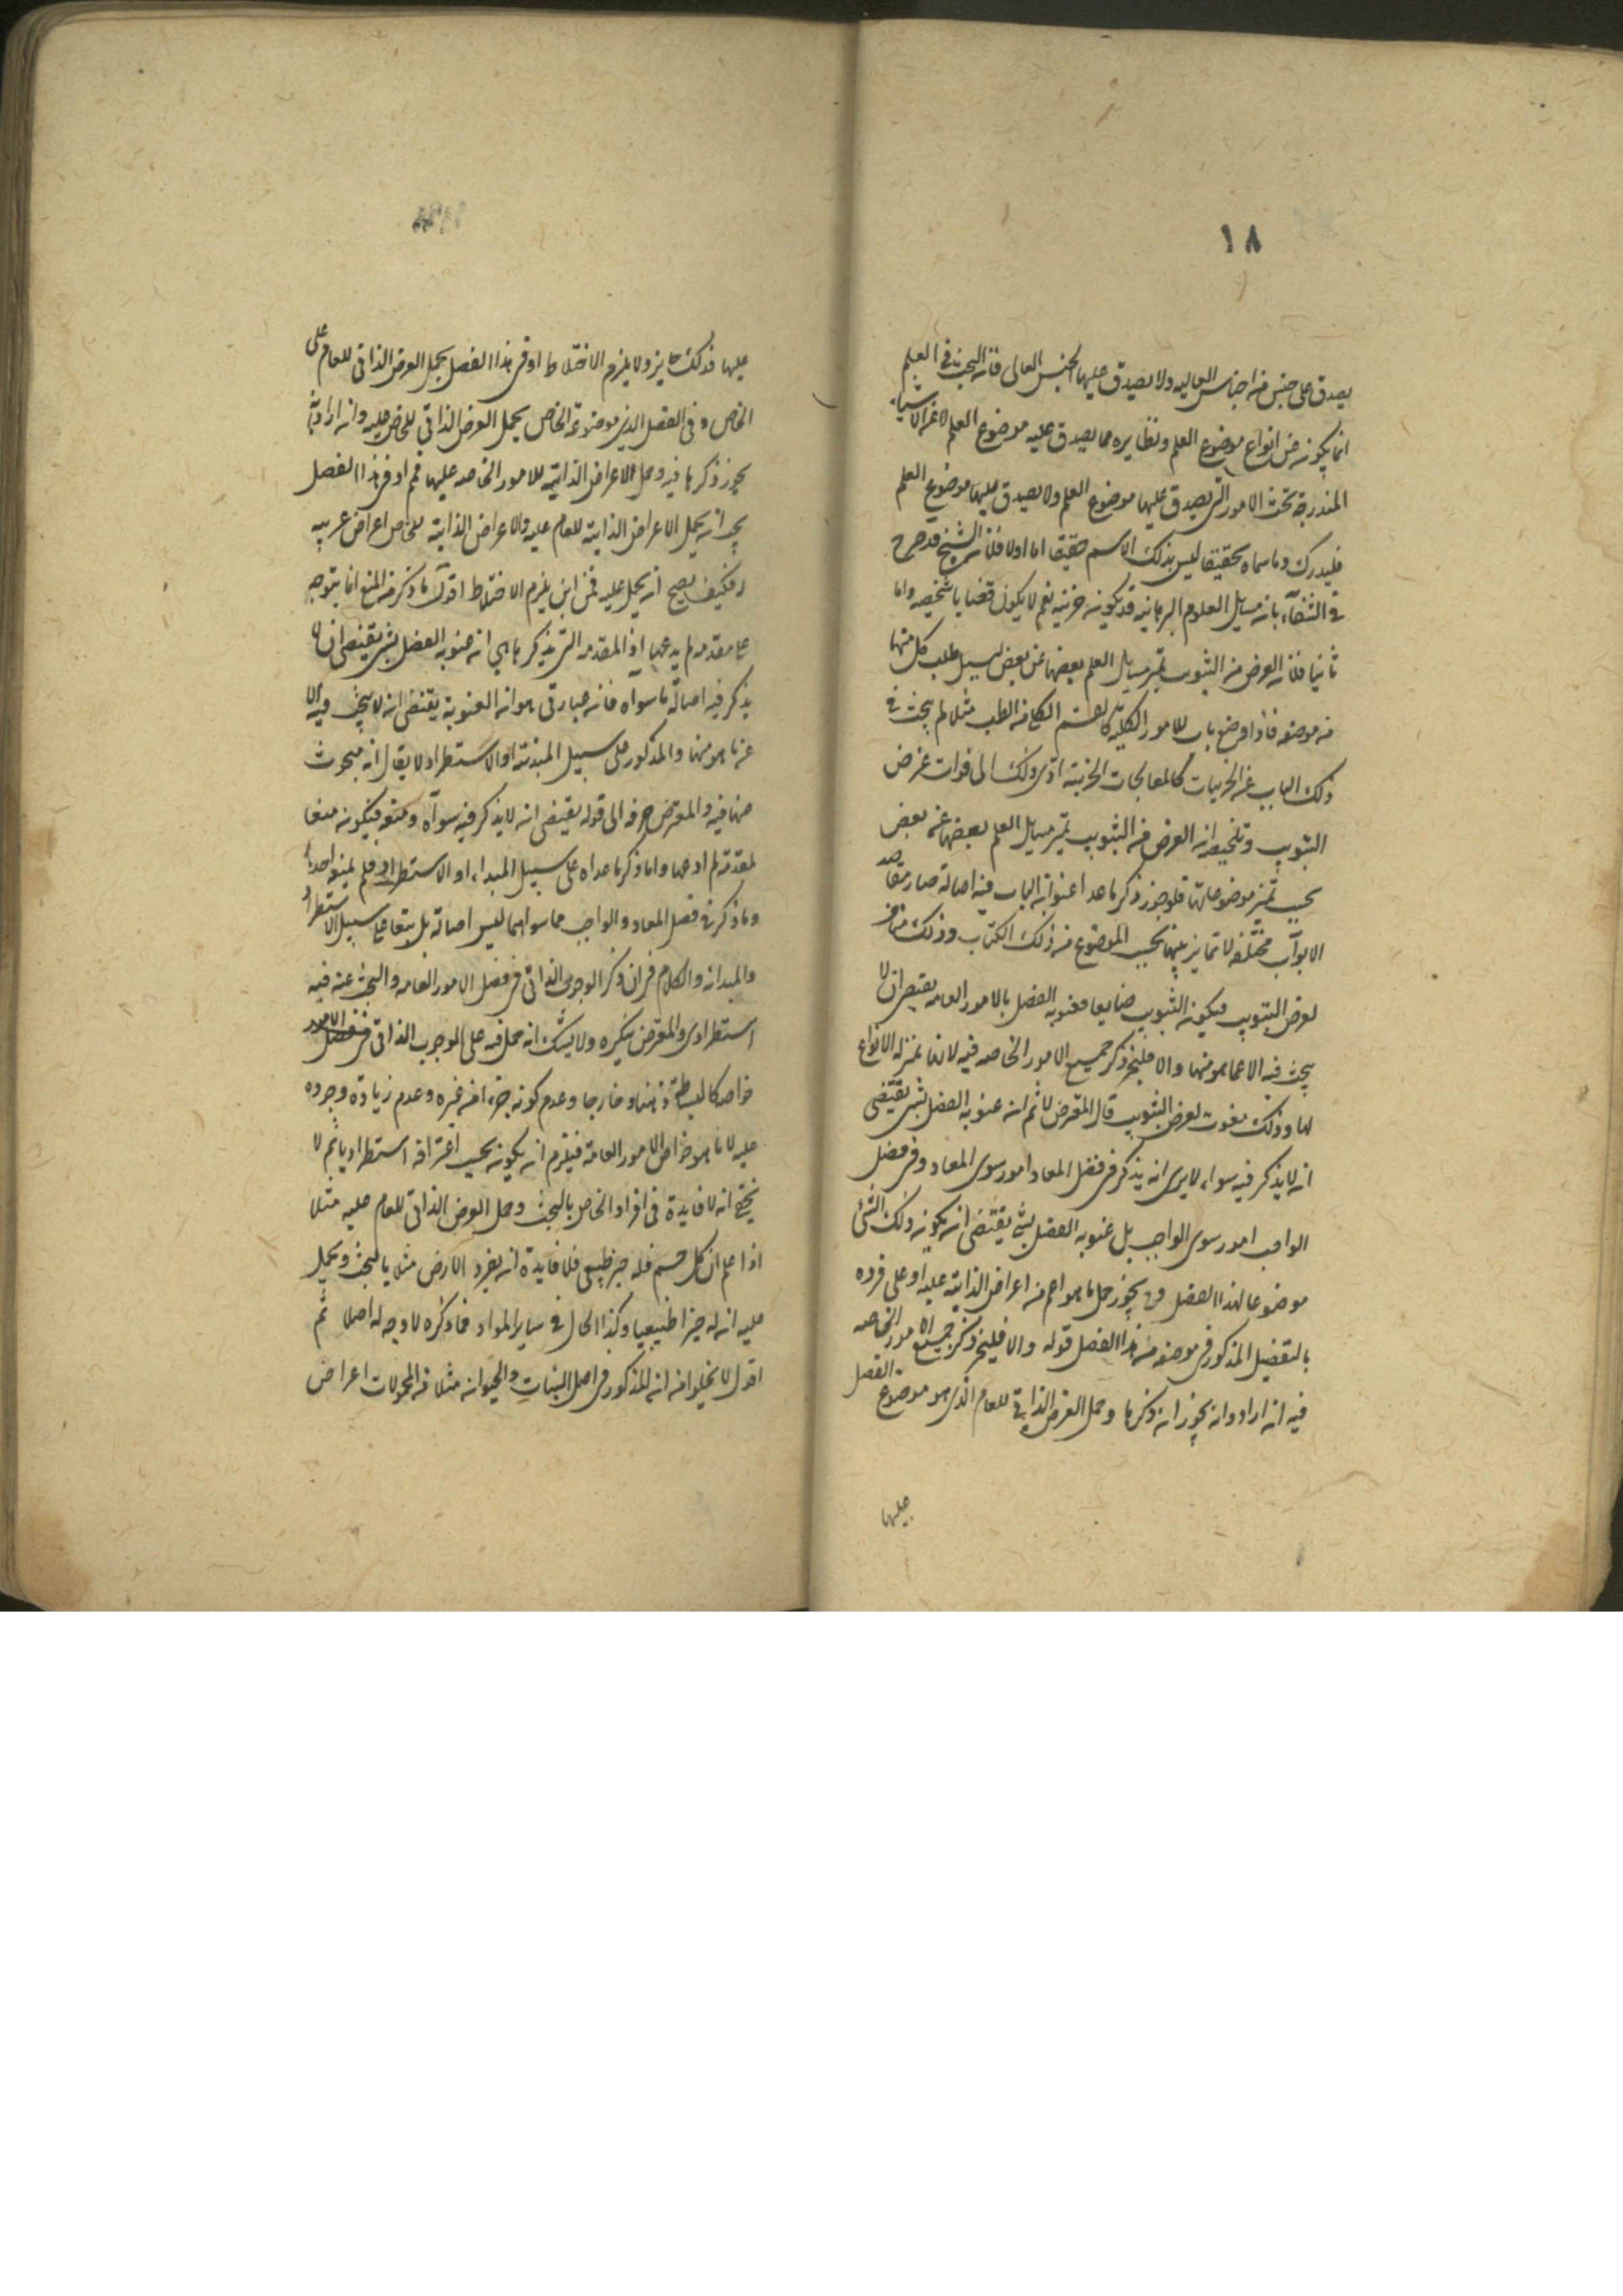 ١٨
يصدق على جنس من اجناس العاليه ولا يصدق عليها الجنس العالى فان البحث فى العلم
انما يكون عن انواع موضوع العلم ونظايره مما يصدق عليه موضوع العلم لا عن الاشياء
المندرجة تحت الامور التى يصدق عليها موضوع العلم ولا يصدق عليها موضوع العلم
فليدرك وما سماه تحقيقا ليس بذلك الاسم حقيقا اما اولا فلان الشيخ قد صرح
فى الشفآء بان مسايل العلوم البرهانيه قد يكون جزئيه نعم لا يكون قضايا شخصيه واما
ثانيا فلان الغرض من التبويب تميز مسايل العلم بعضها عن بعض ليسهل طلب كل منها
من موضعه فاذا وضع باب للامور الكليه كالقسم الكلى من الطب مثلا لم يبحث فى
ذلك الباب عن الجزييات كالمعالجات الجزييه ادى ذلك الى فوات غرض
التبويب وتلخيصه ان الغرض من التبويب تميز مسايل العلم بعضها عن بعض
بحسب تميز موضوعاتها فلو جوز ذكر ما عدا عنوان الباب فيه اصالة صار مقاصد
الابوآب مختلفه لا تمايز بينها بحسب الموضوع من ذلك الكتاب وذلك مناف
لغرض التبويب فيكون التبويب ضايعا فعنونه الفصل بالامور العامه يقتضى ان لا
يبحث فيه الا عما هو منها والا فليجز ذكر جميع الامور الخاصه فيه لانها بمنزلة الانواع
لها وذلك مفوت لغرض التبويب قال المعترض لا ثم ان عنونه الفصل بشى يقتضى
ان لا يذكر فيه سواه لا يرى انه يذكر فى فصل المعاد امور سوى المعاد وفى فصل
الواجب امور سوى الواجب بل عنونه الفصل بشى يقتضى ان يكون ذلك الشئ
موضوعا لهذا الفصل وح يجوز حمل ما هو اعم من اعراض الذاتيه عليه او على فرده
بالتفصيل المذكور فى موضعه من هذا الفصل قوله والا فليجز ذكر جميع الامور الخاصه
فيه ان اراد وان يجوز ان ذكرها وحمل العرض الذاتى للعام الذى هو موضوع الفصل
عليها
عليها فذلك جايز ولا يلزم الاختلاط او فى هذا الفصل يحمل العرض الذاتى للعام على
الخاص وفى الفصل الذى موضوعه الخاص يحمل العرض الذاتى للخاص عليه وان اراد به انه
يجوز ذكرها فيه وحمل الاعراض الذاتيه للامور الخاصه عليها فمم او فى هذا الفصل
يجب ان يحمل الاعراض الذاتية للعام عليه والاعراض الذاتية للخاص اعراض غريبه
له فكيف يصح ان يحمل عليه فمن اين يلزم الاختلاط اقول ما ذكر من المنع انما يتوجه
على مقدمه لم يدعها اذ المقدمه التى يذكرها هى ان عنونه الفصل بشى يقتضى ان لا
يذكر فيه اصالة ما سواه فان عبارتى هو ان العنونة يقتضى ان لا يبحث فيه الا
عن ما هو منها والمذكور على سبيل المبدئيه او الاستطراد لا يقال انه مبحوث
عنها فيه والمعترض حرفه الى قوله يقتضى ان لا يذكر فيه سواه ومنعه فيكون منعا
لمقدمة لم ادعها واما ذكر ما عداه على سبيل المبداء او الاستطراد فلم يمنعه احد
وما ذكر فى فصل المعاد والواجب مما سواهما ليس اصالة بل تبعا على سبيل الاستطراد
والمبدائيه والكلام فى ان ذكر الوجوب الذاتى فى فصل الامور العامه والبحث عنه فيه
استطرادى والمعترض ينكره ولا شك انه حمل فيه على الوجوب الذاتى فى فصل الامور
خواصه كالبساطة ذهنا وخارجا وعدم كونه جزءا من غيره وعدم زيادة وجوده
عليه لا ما هو خواص الامور العامة فيلزم ان يكون بحسب اعترافه استطراديا ثم لا
يخفى انه لا فايدة فى افراد الخاص بالبحث وحمل العرض الذاتى للعام عليه مثلا
اذا علم ان كل جسم فله حيز طبيعى فلا فايدة ان يفرد الارض مثلا بالبحث ويحمل
عليه ان له حيزا طبيعيا وكذا الحال فى ساير المواد فما ذكره لا وجه له اصلا ثم
اقول لا يخلوا من ان المذكور فى اصل النبات والحيوان مثلا من المحمولات اعراض